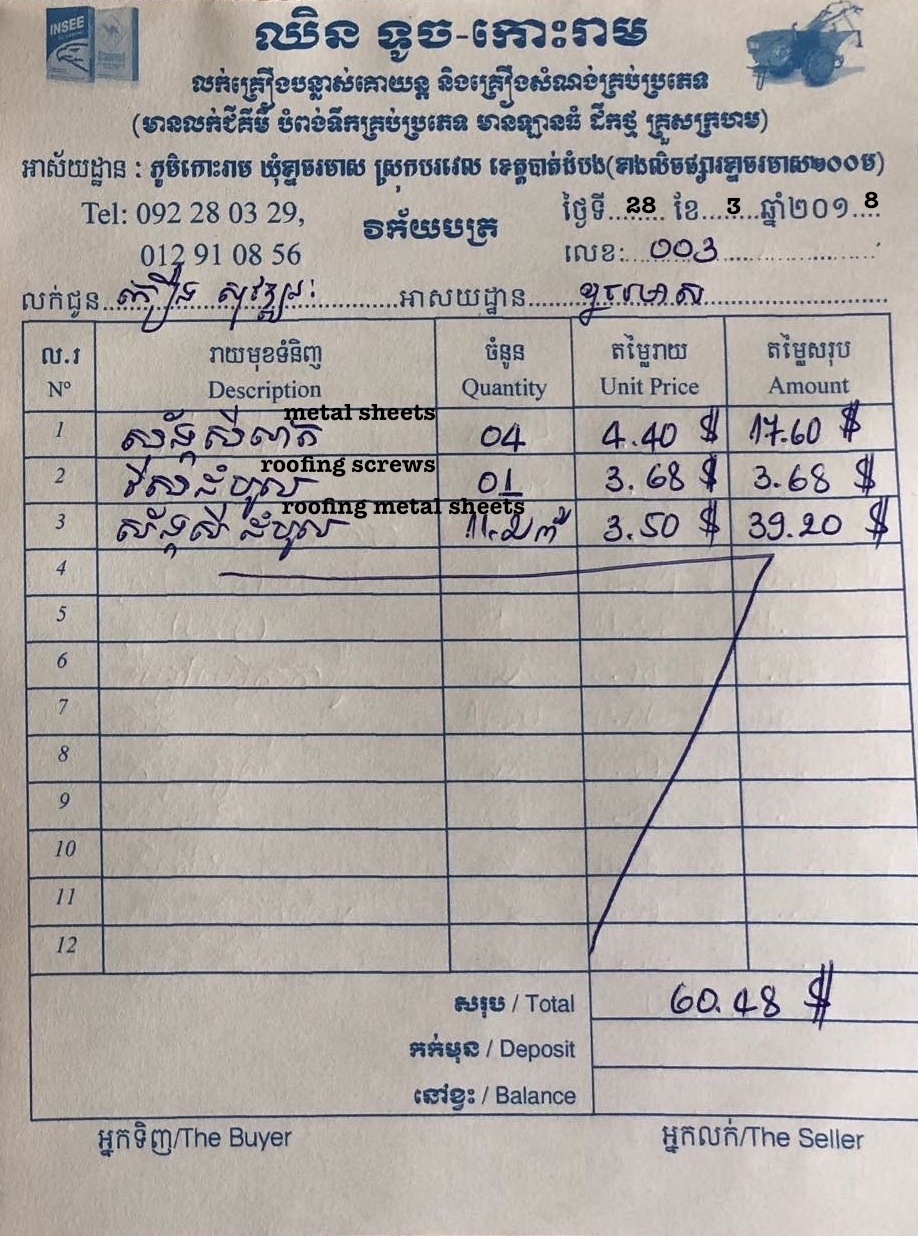 INSEE
ឈិន ទូច-កោះរាម
លក់គ្រឿងបន្លាស់គោយន្ត និងគ្រឿងសំណង់គ្រប់ប្រភេទ
(មានលក់ជីគីមី បំពង់ទឹកគ្រប់ប្រភេទ មានឡានធំ ដឹកថ្ម គ្រួសក្រហម)
អាស័យដ្ឋាន : ភូមិកោះរាម ឃុំខ្នាចរមាស ស្រុកបវេល ខេត្តបាត់ដំបង(ខាងលិចផ្សារខ្នាចរមាស២០០ម)
Tel: 092 28 03 29,
012 91 08 56
វិក័យបត្រ
ថ្ងៃទី 28 ខែ 3 ឆ្នាំ២០១ 8
លេខ: 003
លក់ជូន អាសយដ្ឋាន
ល.រ រាយមុខទំនិញ ចំនួន តម្លៃរាយ តម្លៃសរុប
Nº Description Quantity Unit Price Amount
metal sheets
1 ស័ង្កសី 04 4.40 $ 17.60 $
roofing screws
2 វីសដំបូល 01 3.68 $ 3.68 $
roofing metal sheets
3 ស័ង្កសី ដំបូល 3.50 $ 39.20 $
4
5
6
7
8
9
10
11
12
សរុប / Total 60.48 $
កក់មុន / Deposit
នៅខ្វះ / Balance
អ្នកទិញ/The Buyer អ្នកលក់/The Seller